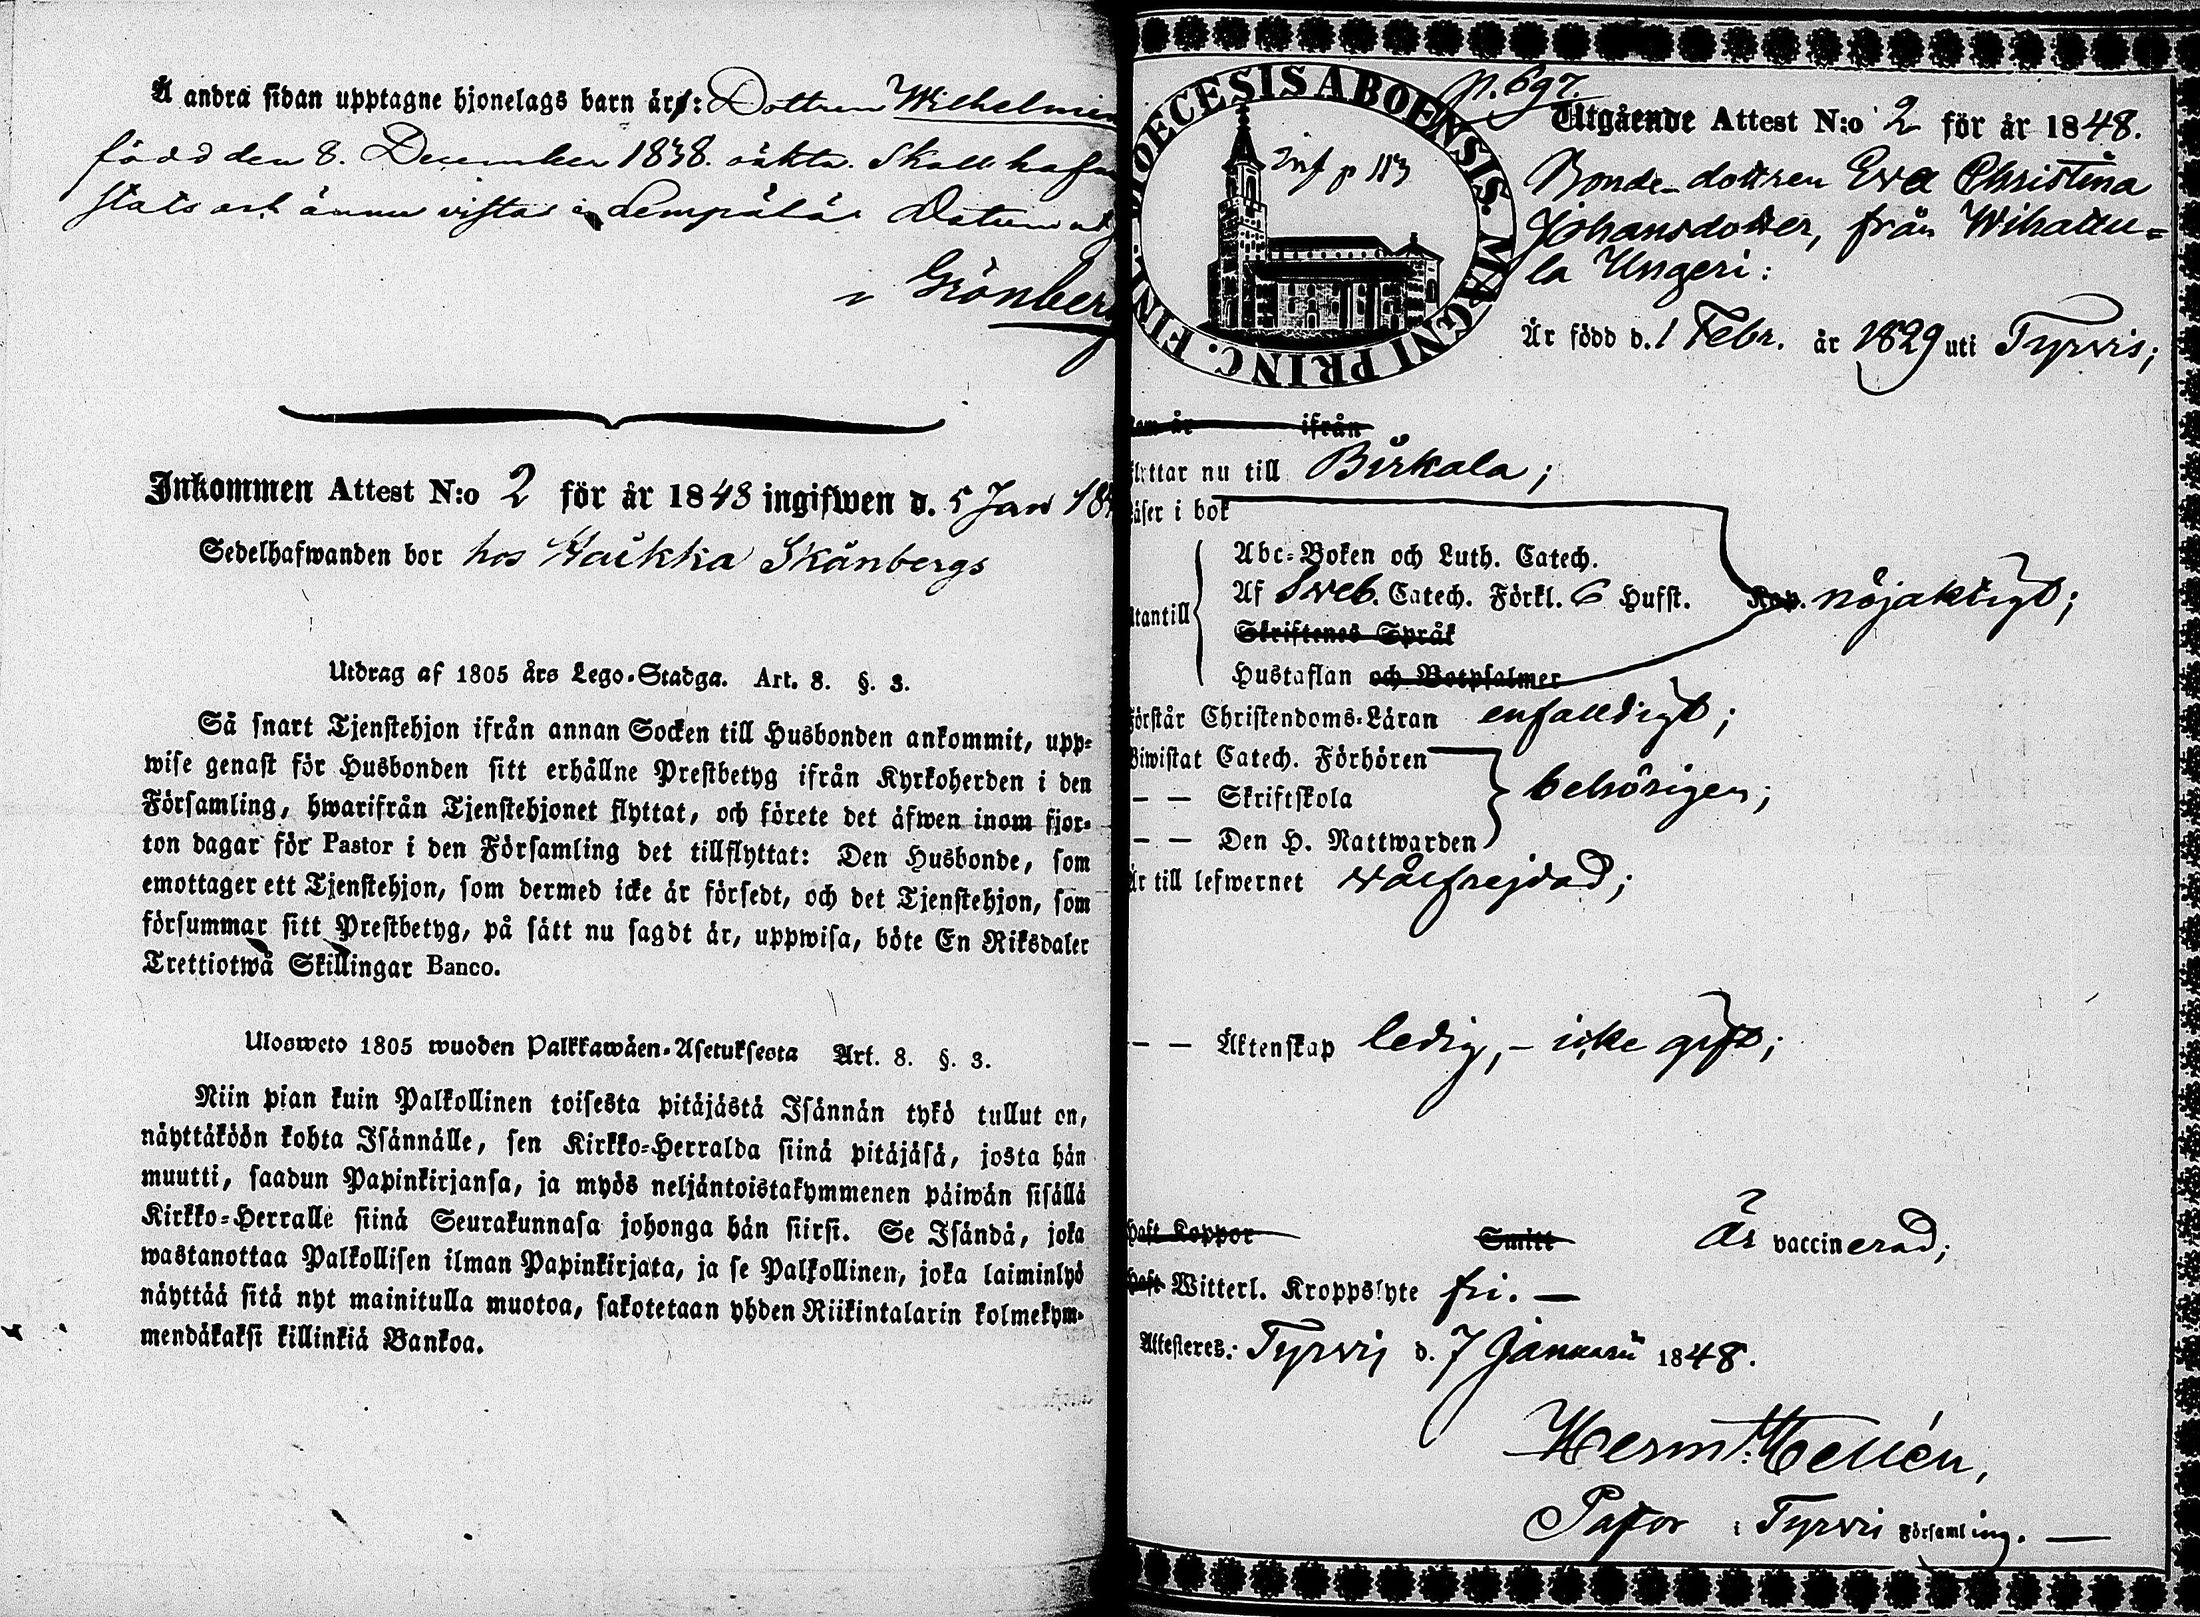 Å andra sidan upptagne hjonelags barn är: Dottren Wilhelmin
född den 8. December 1838. äkta. Skall hafva
stats och ännu vistas i Lempälä. Datum ut
Grönberg
Inkommen Attest N:o 2 för år 1848 ingifwen d. 5 Jan 18
Sedelhafwanden bor hos Haikka Skänbergs
Utdrag af 1805 års Lego-Stadga. Art. 8. §. 3.
Så snart Tjenstehjon ifrån annan Socken till Husbonden ankommit, upp-
wise genast för Husbonden sitt erhållne Prestbetyg ifrån Kyrkoherden i den
Församling, hwarifrån Tjenstehjonet flyttat, och förete det äfwen inom fjor-
ton dagar för Pastor i den Församling det tillflyttat: Den Husbonde, som
emottager ett Tjenstehjon, som dermed icke är försedt, och det Tjenstehjon, som
försummar sitt Prestbetyg, på sätt nu sagdt är, uppwisa, böte En Riksdaler
Trettiotwå Skillingar Banco.
Ulosweto 1805 wuoden Palkkawäen-Asetuksesta Art. 8. §. 3.
Niin pian kuin Palkollinen toisesta pitäjästä Isännän tykö tullut on,
näyttäköön kohta Isännälle, sen Kirkko-Herralda siinä pitäjäsä, josta hän
muutti, saadun Papinkirjansa, ja myös neljäntoistakymmenen päiwän sisällä
Kirkko-Herralle siinä Seurakunnasa johonga hän siirsi. Se Isändä, joka
wastanottaa Palkollisen ilman Papinkirjata, ja se Palkollinen, joka laiminlyö
näyttää sitä nyt mainitulla muotoa, sakotetaan yhden Riikintalarin kolmekym-
mendäkaksi killinkiä Bankoa.
DIOECESIS ABOENSIS. MAGNI PRINC. FINL.
p. 697.
Inf p 113
Utgående Attest N:o 2 för år 1848.
Bonde-dottren Eva Christina
Johansdotter, från Wihattu=
la Ungeri:
Är född d. 1 Febr. år 1829 uti Tyrvis;
Kom år ifrån
flyttar nu till Birkala;
Läser i bok
Abc-Boken och Luth. Catech.
Utantill Af Sveb. Catech. Förkl. 6 Hufst. Kap. nöjaktigt;
Skriftenes Språk
Hustaflan och Botpsalmer
Förstår Christendoms-Läran enfaldigt;
Biwistat Catech. Förhören
— — Skriftskola behörigen;
— — Den H. Nattwarden
Är till lefwernet välfrejdad;
— — Äktenskap ledig, - icke gift;
Haft Koppor Smitt Är vaccinerad;
Haft Witterl. Kroppslyte fri. —
Attesteres: Tyrvis d. 7 Januarii 1848.
Herm: Hellén,
Pastor i Tyrvis Församling. —